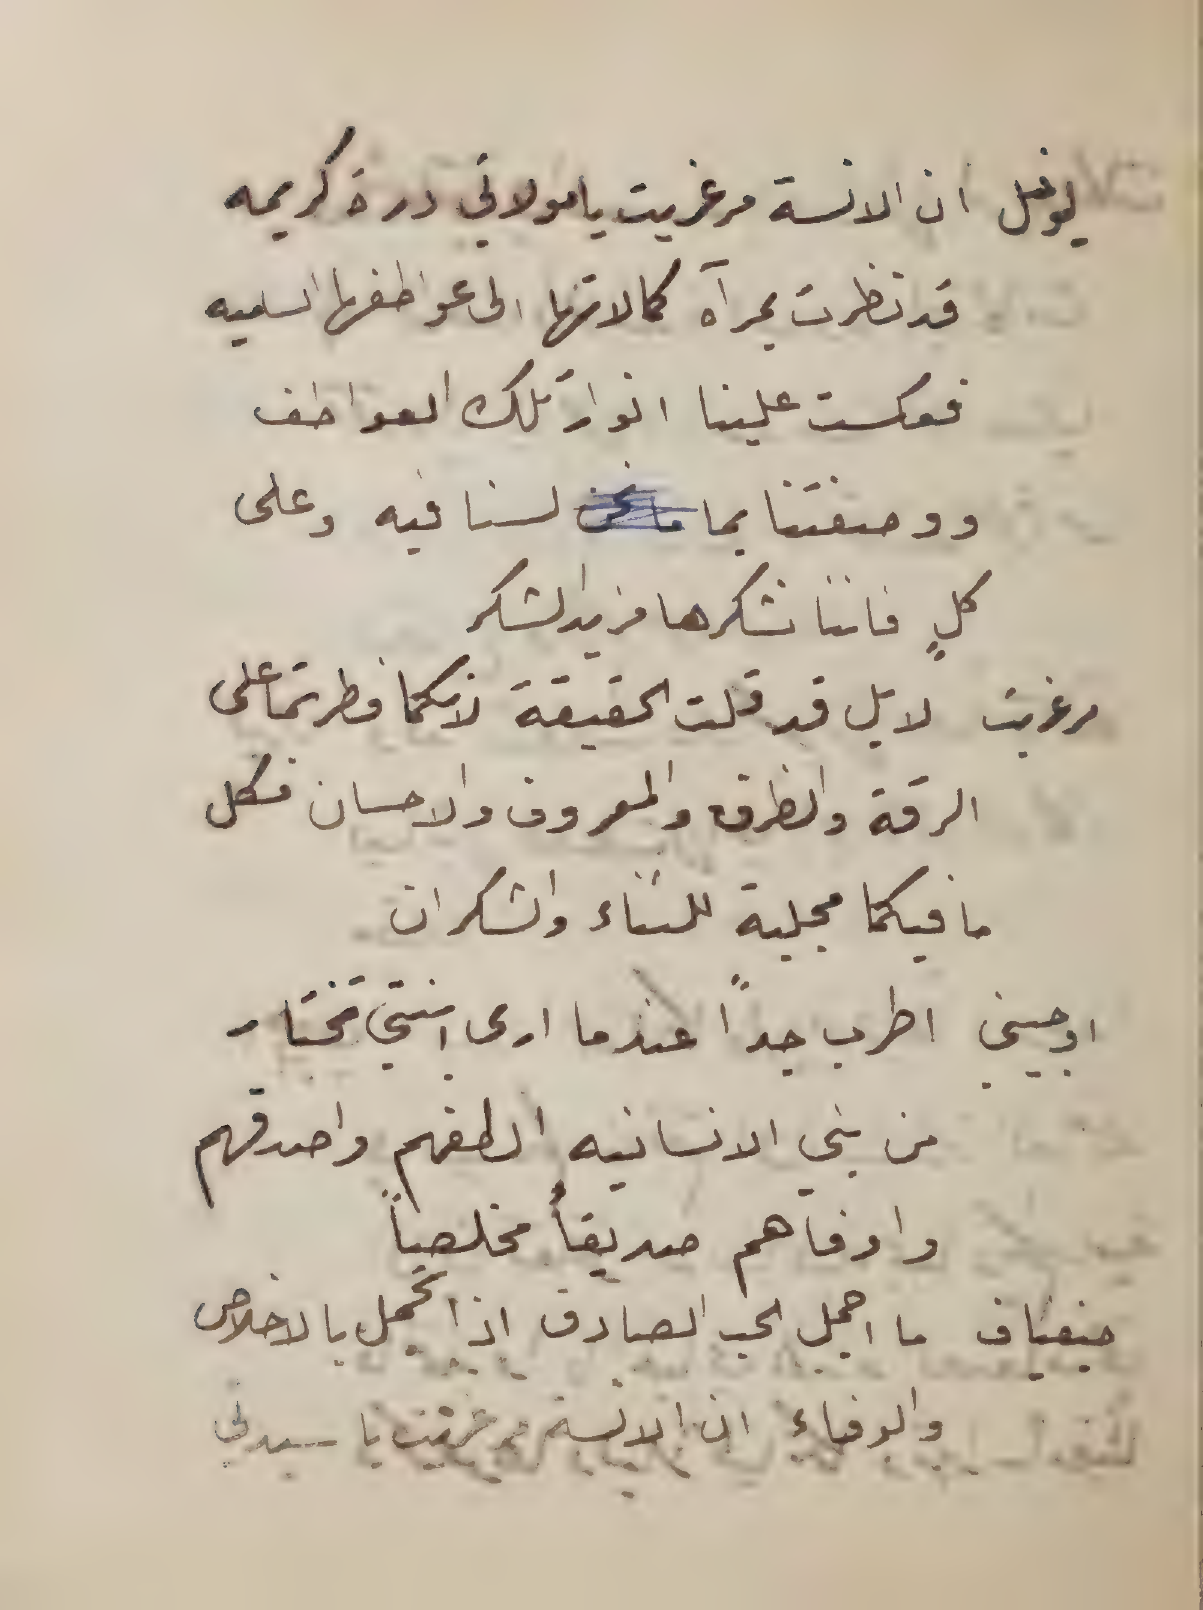 ليونيل ان الانسة مرغريت يا مولاتي درة كريمه
قد نظرت بمرآة كمالاتها الى عواطفها الساميه
فعكست علينا انوار تلك العواطف
ووصفتنا بما ما نحن لسنا فيه وعلى
كلٍ فاننا نشكرها مزيد الشكر
مرغريت لا بل قد قلت الحقيقة لانكما فطرتما على
الرقة والظرف والمعروف والاحسان فكل
ما فيكما مجلبة للثناء والشكران
اوجيني اطرب جداً عندما ارى ابنتي تختار
من بني الانسانيه الطفهم واصدقهم
واوفاهم صديقاً مخلصاً
جنفياف ما اجمل الحب الصادق اذا تجمل بالاخلاص
والوفاء ان الانسة مرغريت يا سيدتي